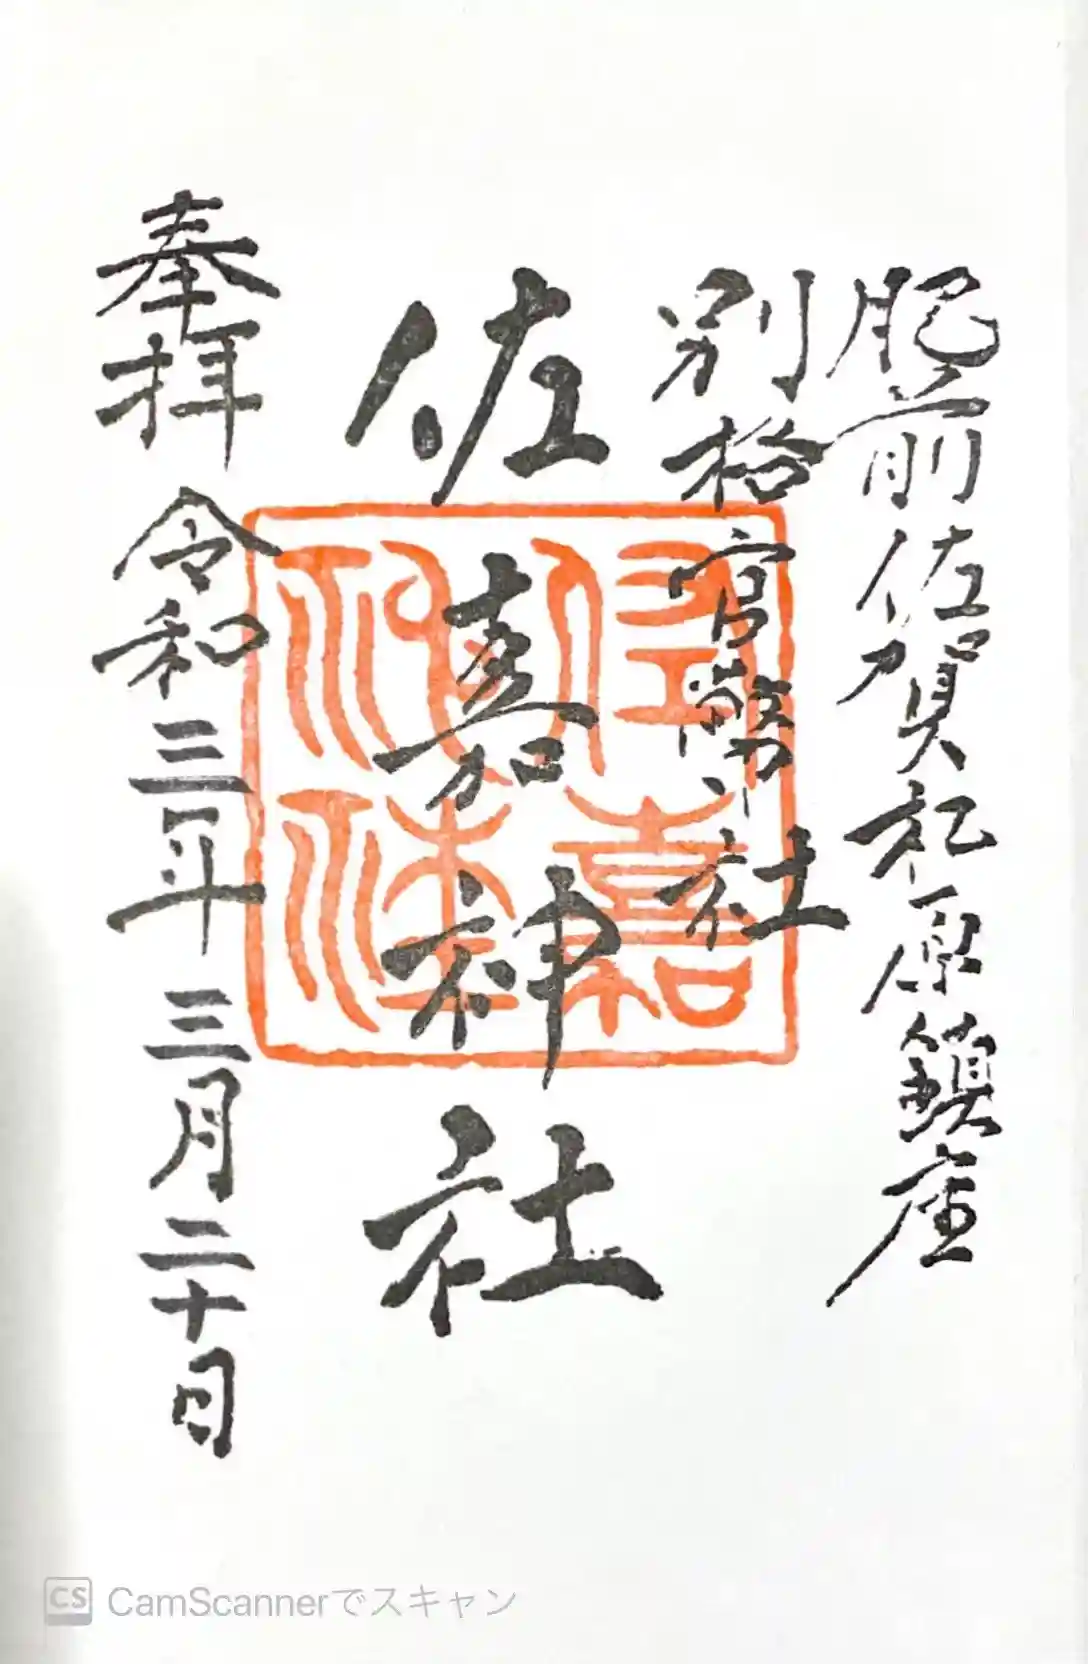 肥前佐賀松原鎮座
別格官幣社
佐嘉神社
奉拝 令和三年 三月二十日
CS CamScannerでスキャン